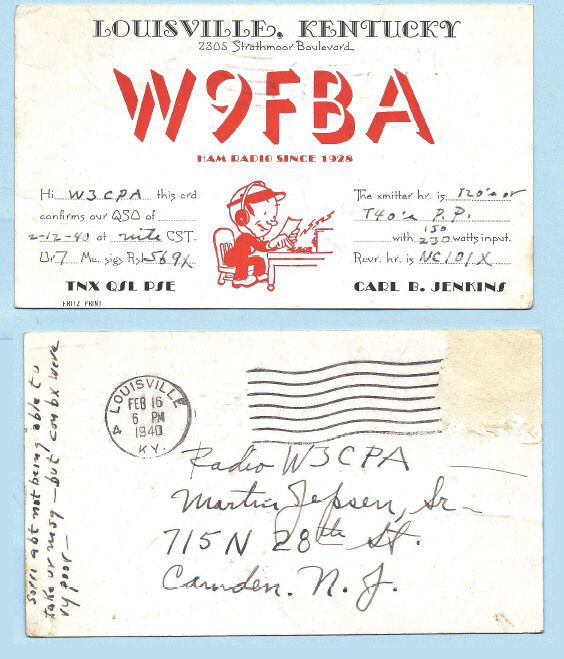 LOUISVILLE, KENTUCKY
2305 Strathmoor Boulevard
W9FBA
HAM RADIO SINCE 1928
Hi W3CPA this crd
confirms our QSO of
2-12-40 at nite CST.
Ur 7 Mc. sigs Rst 569X
TNX QSL PSE
FRITZ PRINT
The xmitter hr. is T20's or
T40's P.P.
150
with 230 watts input.
Rcvr. hr. is NC101X
CARL B. JENKINS
LOUISVILLE
FEB 16
6 PM
1940
4
KY.
Radio W3CPA
Martin Jepsen, Sr.
715 N 28th St.
Camden. N. J.
sorri abt not being able to
take ur msg — but condx were
vy poor —